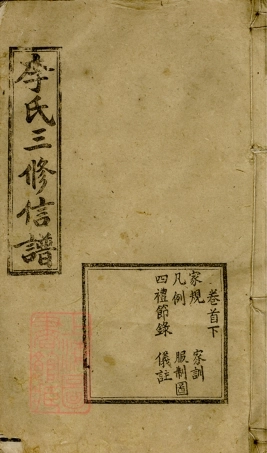 李氏三修信譜
卷首下
家規　家訓
凡例　服制圖
四禮節錄　儀註